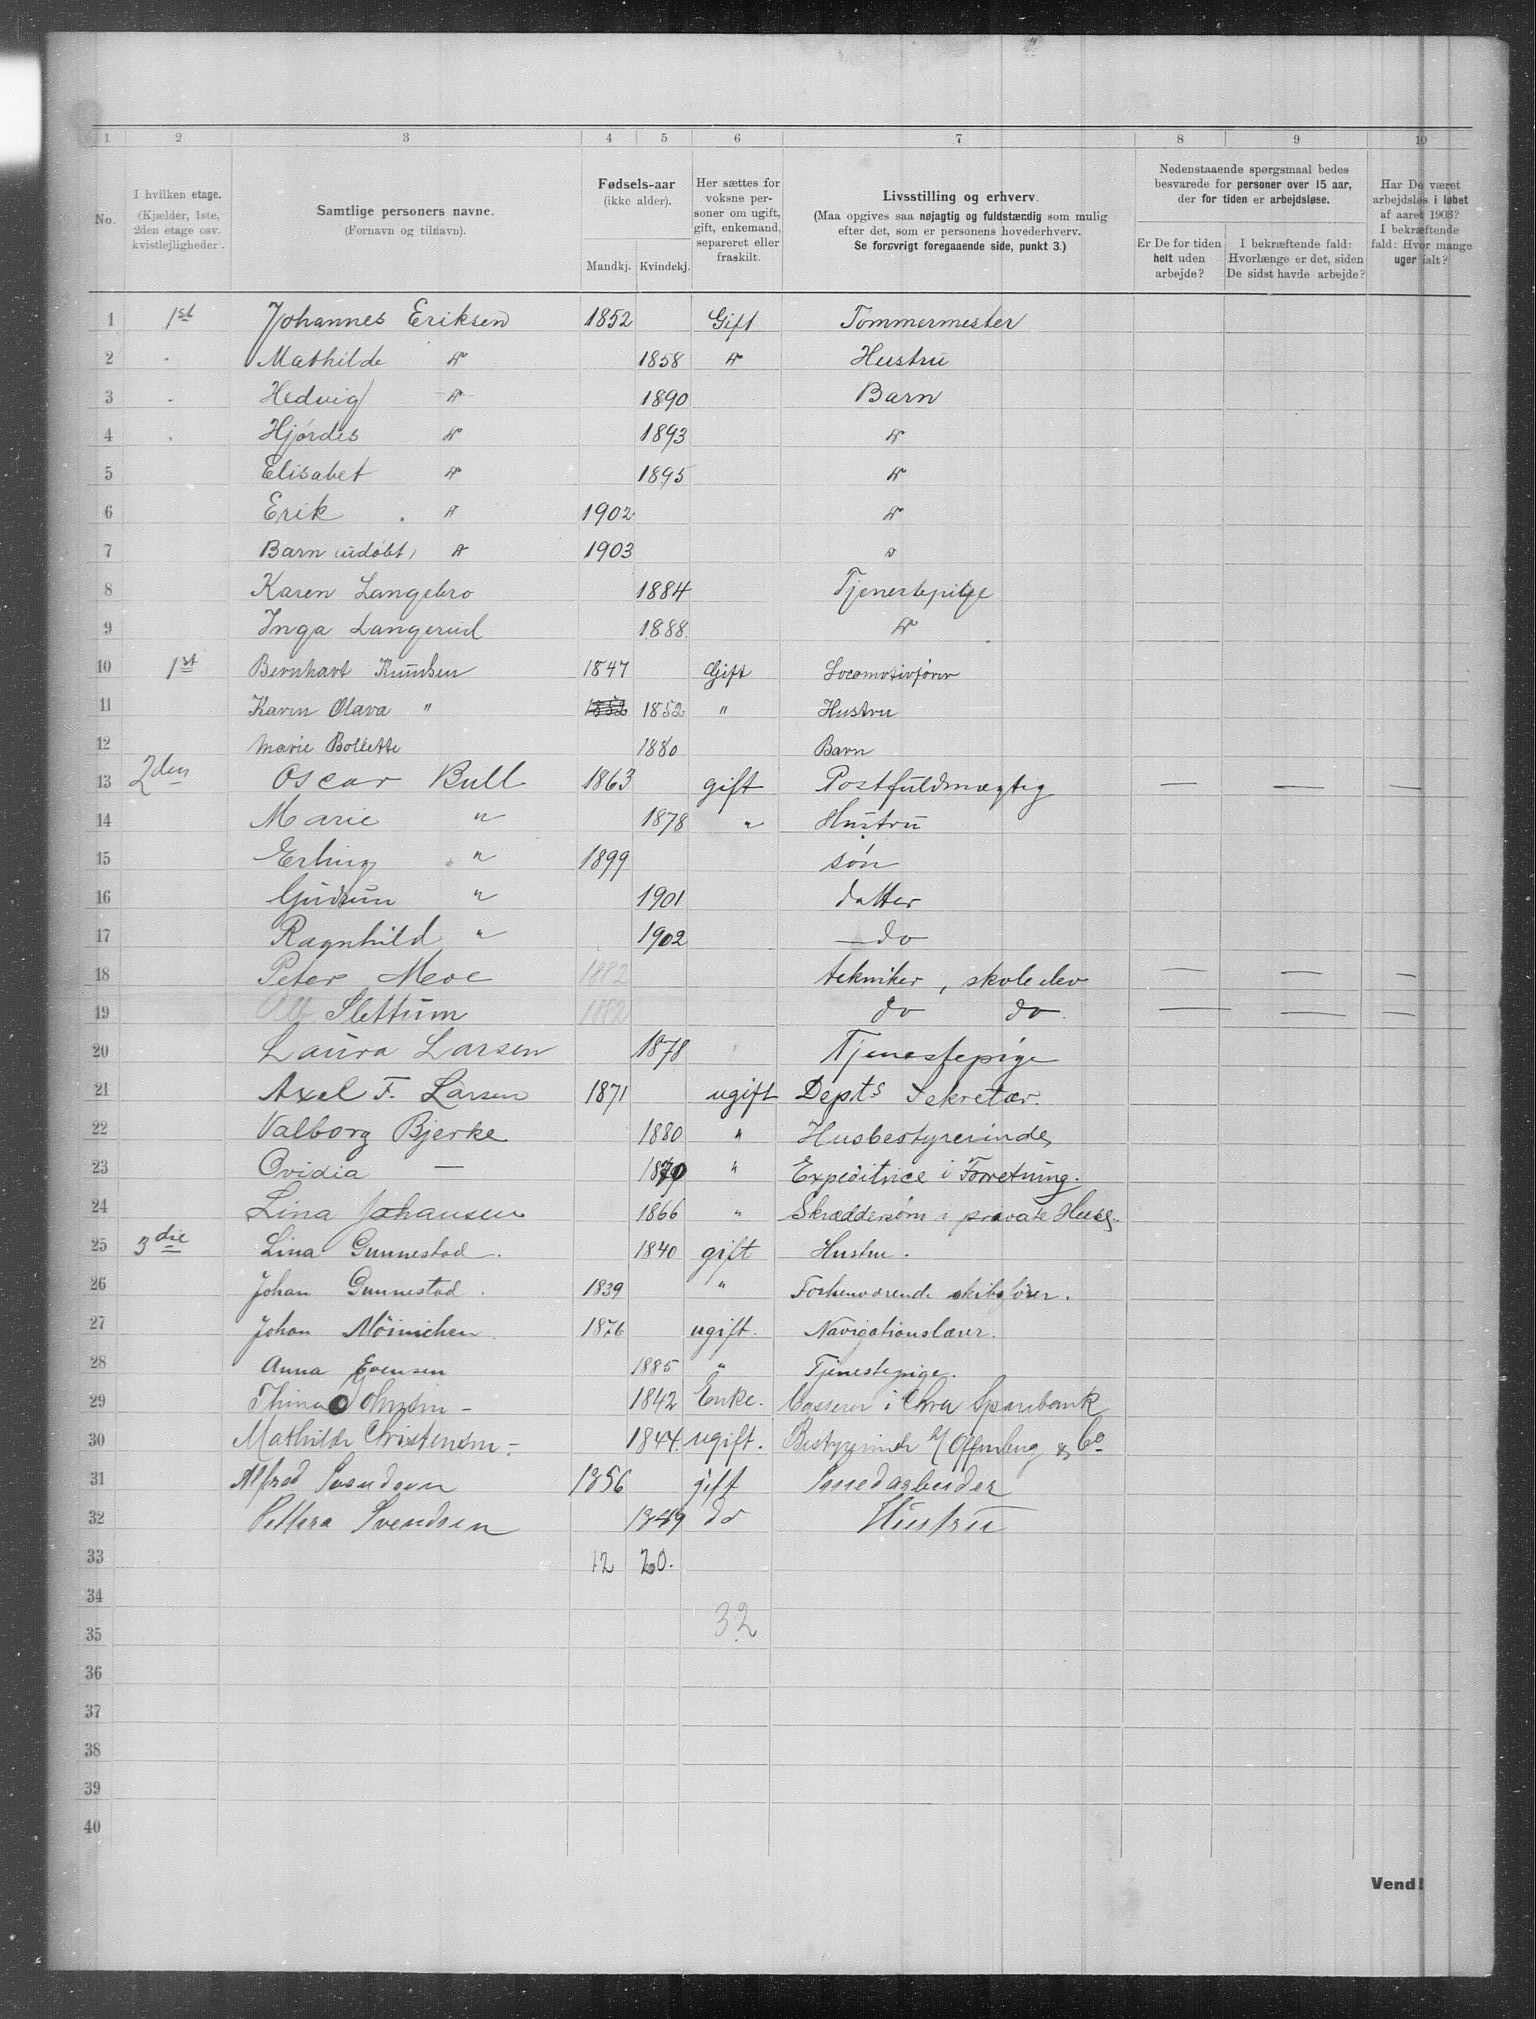 1 2 3 4 5 6 7 8 9 10
No.
I hvilken etage.
(Kjælder, 1ste,
2den etage osv.
kvistlejligheder).
Samtlige personers navne.
(Fornavn og tilnavn).
Fødsels-aar
(ikke alder).
Mandkj. Kvindekj.
Her sættes for
voksne per-
soner om ugift,
gift, enkemand,
separeret eller
fraskilt.
Livsstilling og erhverv.
(Maa opgives saa nøjagtig og fuldstændig som mulig
efter det, som er personens hovederhverv.
Se forøvrigt foregaaende side, punkt 3.)
Nedenstaaende spørgsmaal bedes
besvarede for personer over 15 aar,
der for tiden er arbejdsløse.
Er De for tiden
helt uden
arbejde?
I bekræftende fald:
Hvorlænge er det, siden
De sidst havde arbejde?
Har De været
arbejdsløs i løbet
af aaret 1903?
I bekræftende
fald: Hvor mange
uger ialt?
1 1st Johannes Eriksen 1852 Gift Tommermester
2 Mathilde " 1858 " Hustru
3 Hedvig " 1890 Barn
4 Hjørdis " 1893 "
5 Elisabet " 1895 "
6 Erik " 1902 "
7 Barn (udøbt) " 1903 "
8 Karen Langebro 1884 Tjenestepige
9 Inga Langerud 1888 "
10 1st Bernhart Knudsen 1847 Gift Locomotivfører
11 Karen Olava " 1852 1852 " Hustru
12 Marie Bollette 1880 Barn
13 2den Oscar Bull 1863 gift Postfuldmægtig — — —
14 Marie " 1878 " Hustru
15 Erling " 1899 søn
16 Gudrun " 1901 datter
17 Ragnhild " 1902 — do
18 Peter Moe 1882 tekniker, skoleelev — — —
19 Alf Slettum 1882 do do — — —
20 Laura Larsen 1878 Tjenestepige
21 Axel F. Larsen 1871 ugift Depts Sekretær.
22 Valborg Bjerke 1880 " Husbestyrerinde
23 Ovidia — 1870 " Expeditrice i Forretning.
24 Lina Johansen 1866 " Skræddersøm i private Huse.
25 3die Lina Gunnestad. 1840 gift Hustru.
26 Johan Gunnestad. 1839 " Forhenværende skibsfører.
27 Johan Møinichen. 1876 ugift. Navigationslærer.
28 Anna Evensen 1885 " Tjenestepige.
29 Thina 1842 Enke. Casserer i Chra Sparebank
30 Mathilde Christensen - 1844. ugift. Bestyrerinde & Co
31 Alfred Svendsen 1856 gift
32 Pettera Svendsen 1849 do Hustru
33 12 20.
34
32
35
36
37
38
39
40
Vend!